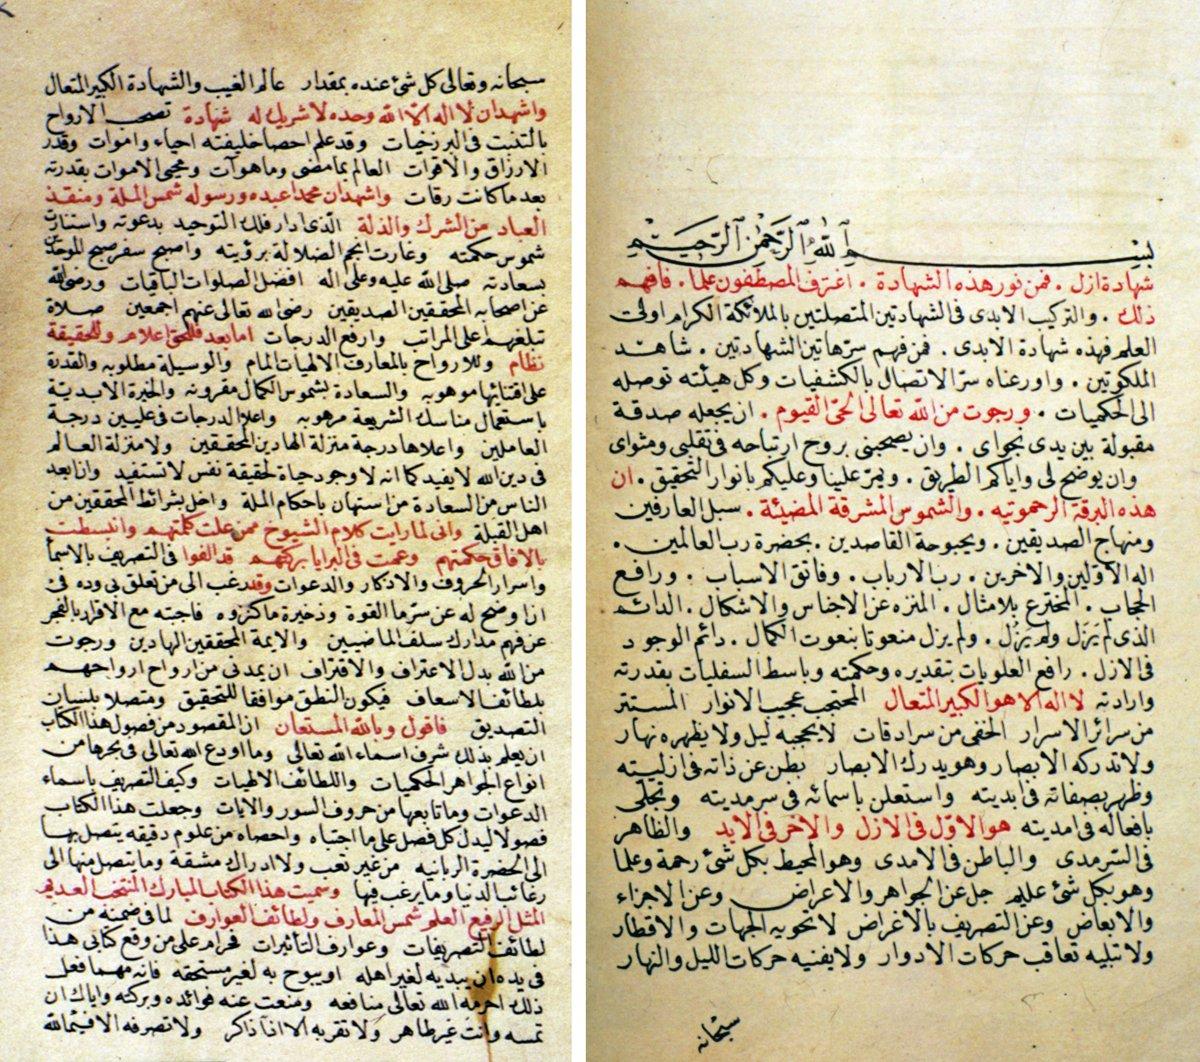 بسم الله الرحمن الرحيم
شهادة ازل . فمن نور هذه الشهادة . اغترف المصطفون علما . فافهم
ذلك . والتركيب الابدى فى الشهادتين المتصلتين بالملائكة الكرام اولى
العلم فهذه شهادة الابدى . فمن فهم سرهاتين الشهادتين . شاهد
الملكوتين . واورعناه سر الاتصال بالكشفيات وكل هيئته توصله
الى الحكميات . ورجوت من الله تعالى الحى القيوم . ان يجعله صدقة
مقبولة بين يدى نجواى . وان يصحبنى بروح ارتياحه فى تقلبى ومثواى
وان يوضح لى واياكم الطريق . ويمر علينا وعليكم بانوار التحقيق . ان
هذه البرقة الرحموتيه . والشموس المشرقة المضيئة . سبل العارفين
ومنهاج الصديقين . وبحبوحة القاصدين . بحضرة رب العالمين .
اله الاولين والاخرين . رب الارباب . وفاتق الاسباب . ورافع
الحجاب . المخترع بلا مثال . المنزه عن الاجناس والاشكال . الدائم
الذى لم يَزَل ولم يزُل . ولم يزل منعوتا بنعوت الكمال . دائم الوجود
فى الازل . رافع العلويات بتقديره وحكمته وباسط السفليات بقدرته
وارادته لا اله الا هو الكبير المتعال المحتجب عجيب الانوار المستتر
من سرائر الاسرار الخفى من سرادقات لا يحجبه ليل ولا يظهره نهار
ولا تدركه الابصار وهو يدرك الابصار بطن عن ذاته فى ازليته
وظهر بصفاته فى ابديته واستعلن باسمائه فى سرمديته وتجلى
بافعاله فى امديته هو الاول فى الازل والاخر فى الابد والظاهر
فى السرمدى والباطن فى الامدى وهو المحيط بكل شئ رحمة وعلما
وهو بكل شئ عليم جل عن الجواهر والاعراض وعن الاجزاء
والابعاض وعن التصريف بالاغراض لا تحويه الجهات والاقطار
ولا تبليه تعاقب حركات الادوار ولا يفنيه حركات الليل والنهار
سبحانه
سبحانه وتعالى كل شئ عنده بمقدار عالم الغيب والشهادة الكبير المتعال
واشهد ان لا اله الا الله وحده لا شريك له شهادة تصحب الارواح
بالتثبت فى البرزخيات وقد علم احصا خليفته احياء واموات وقدر
الارزاق والاقوات العالم بما مضى وما هوآت ومحيى الاموات بقدرته
بعد ما كانت رفات واشهد ان محمدا عبده ورسوله شمس الملة ومنقذ
العباد من الشرك والذلة الذى ادار فلك التوحيد بدعوته واستنارت
شموس حكمته وغارت انجم الضلالة برؤيته واصبح سفر صبح الموحدين
بسعادته صلى الله عليه وعلى اله افضل الصلوات الباقيات ورضى الله
عن اصحابه المحققين الصديقين رضى الله تعالى عنهم اجمعين صلاة
تبلغهم على المراتب وارفع الدرجات اما بعد فللحق اعلام وللحقيقة
نظام وللارواح بالمعارف الالهيات المام والوسيلة مطلوبه والقدرة
على اقتنايها موهوبه والسعادة بشموس الكمال مقرونه والخبرة الابدية
باستعمال مناسك الشريعة مرهوبه واعلا الدرجات فى عليين درجة
العاملين واعلاها درجة منزلة الهادين المحققين ولا منزلة العالم
فى دين الله لا يفيد كما انه لا وجود حياة لحقيقة نفس لا تستفيد وان ابعد
الناس من السعادة من استهان باحكام الملة واخل بشرائط المحققين من
اهل القبلة وانى لما رايت كلام الشيوخ ممن علت كلمتهم وانبسطت
بالافاق حكمتهم وعمت فى البرايا بركتهم قد الفوا فى التصريف بالاسما
واسرار الحروف والاذكار والدعوات وقد رغب الى من تعلق بى وده فى
ان اوضح له عن سر ما القوة وذخيرة ما كنزوه فاجبته مع الاقرار بالفجر
عن فهم مدارك سلف الماضيين والايمة المحققين الهادين ورجوت
من الله بدل الاعتراف والاقتراف ان يمدنى من ارواح ارواحهم
بلطائف الاسعاف فيكون النطق موافقا للتحقيق ومتصلا بلسان
التصديق فاقول وبالله المستعان ان المقصود من فصول هذا الكتاب
ان يعلم بذلك شرف اسماء الله تعالى وما اودع الله تعالى فى بحرها من
انواع الجواهر الحكميات واللطائف الالهيات وكيف التصريف باسماء
الدعوات وما تابعها من حروف السور والايات وجعلت هذا الكتاب
فصولا ليدل كل فصل على ما اجتباه واحصاه من علوم دقيقه يتصل بها
الى الحضرة الربانيه من غير تعب ولا ادراك مشقة وما يتصل منها الى
رغائب الدنيا وما يرغب فيها وسميت هذا الكتاب المبارك المنتخب العديم
المثل الرفيع العلم شمس المعارف ولطائف العوارف لما فى ضمنه من
لطائف التصريفات وعوارف التأثيرات فحرام على من وقع كتابى هذا
فى يده ان يبديه لغير اهله اويبوح به لغير مستحقه فانه مهما فعل
ذلك احرمه الله تعالى منافعه ومنعت عنه فوائده وبركته واياك ان
تمسه وانت غير طاهر ولا تقربه الا اذا ذاكر ولا تصرفه الا فيما لله